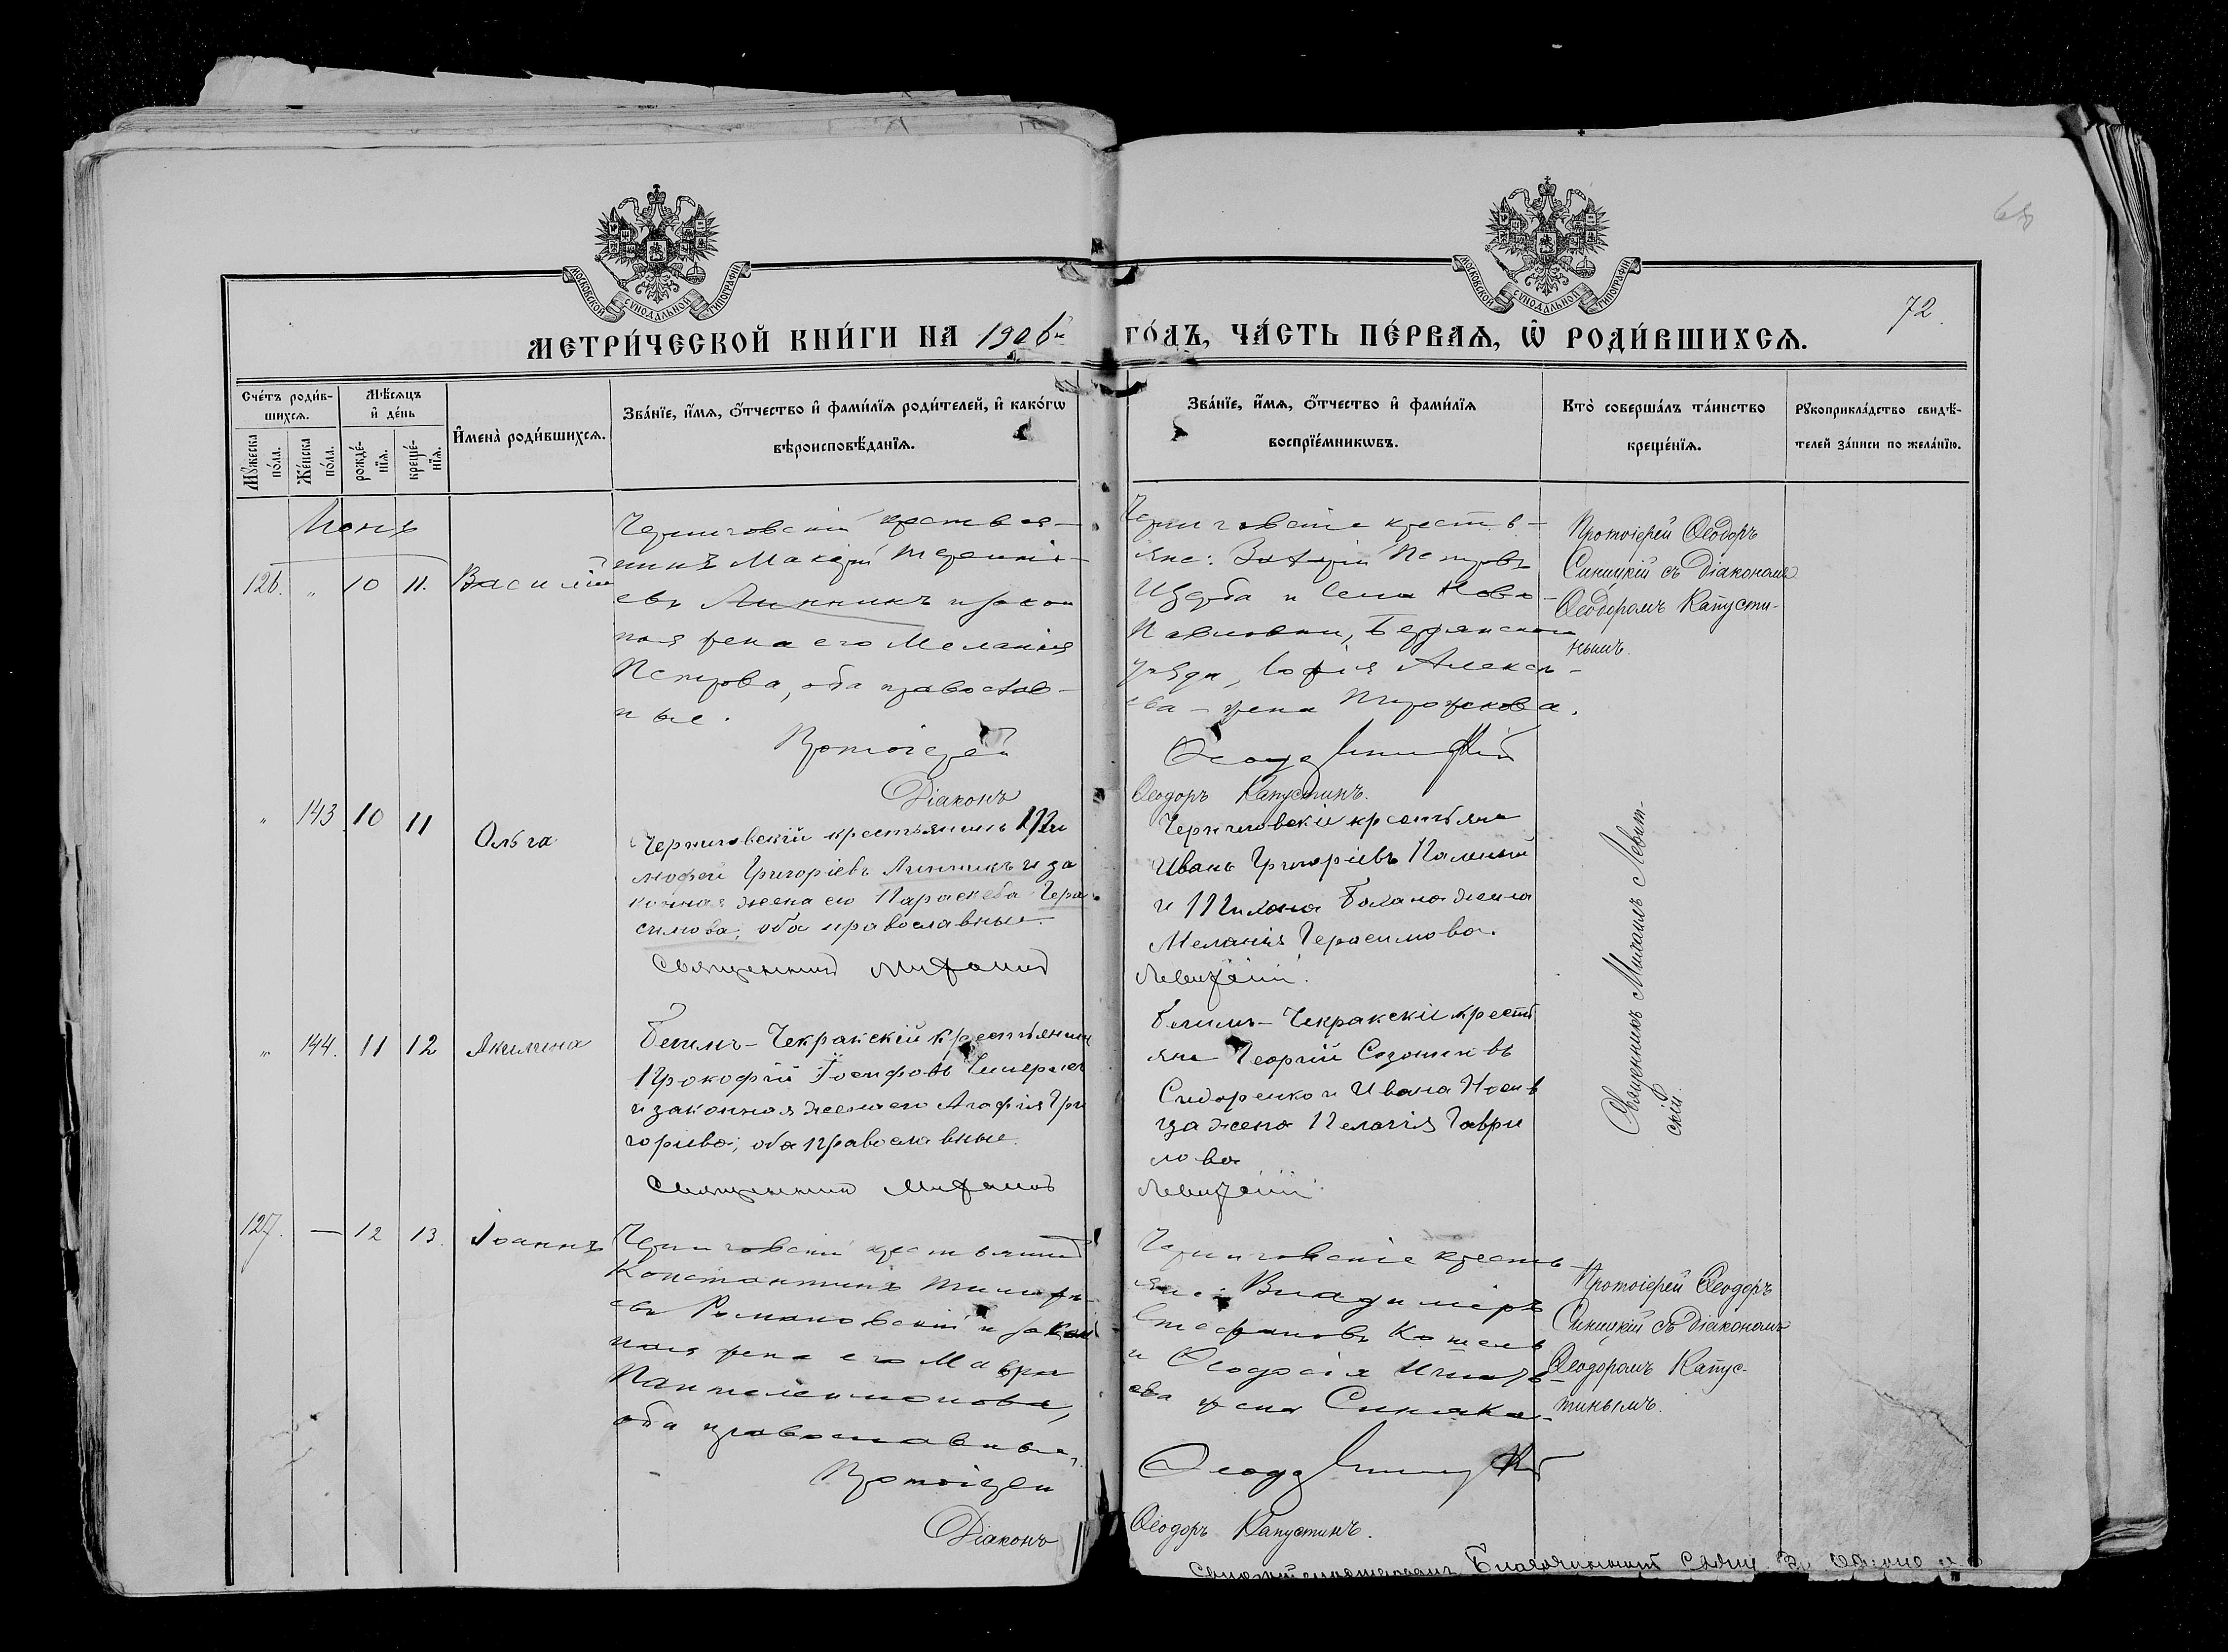 68
МОСКОВСКОЙ СѴНОДАЛЬНОЙ ТИПОГРАФІИ
МОСКОВСКОЙ СѴНОДАЛЬНОЙ ТИПОГРАФІИ
72.
МЕТРИ́ЧЕСКОЙ КНИ́ГИ НА 1906й ГО́ДЪ, ЧА́СТЬ ПЕ́РВАѦ, Ѡ РОДИ́ВШИХСѦ.
Сче́тъ роди́в-
шихсѧ.
Мꙋжеска
по́ла.
Же́нска
по́ла.
Мѣ́сѧцъ
и҆ де́нь
рожде́-
нїѧ.
креще́-
нїѧ.
И҆мена̀ роди́вшихсѧ.
Зва́нїе, и҆́мѧ, ѻ҆́тчество и҆ фами́лїѧ роди́телей, и҆ како́гѡ
вѣроисповѣ́данїѧ.
Зва́нїе, и҆́мѧ, ѻ҆́тчество и҆ фами́лїѧ
воспрїе́мникѡвъ.
Кто̀ соверша́лъ та́инство
креще́нїѧ.
Рꙋкоприкла́дство свидѣ́-
телей за́писи по жела́нїю.
Іюнь
126. " 10 11. Василій
Черниговскій крестья-
нинъ Макарій Терентіе-
евъ Линникъ и закон
ная жена его Меланія
Петрова, оба православ-
ные.
Протоіерей
Діаконъ
Черниговскіе кресть-
яне: Захарій Петровъ
Щерба и села Ново-
Павловки, Бердянскаго
уѣзда, Софія Алексѣ-
ева - жена Пирожкова.
Ѳеодоръ Синицкій
Ѳеодоръ Капустинъ.
Протоіерей Ѳеодоръ
Синицкій съ діакономъ
Ѳеодоромъ Капусти-
нымъ.
" 143. 10 11 Ольга
Черниговскій крестьянинъ Ти
мофей Григоріевъ Линникъ и за
конная жена его Параскева Гера
симова; оба православные.
Священникъ Михаилъ
Черниговскіе крестьяне
Иванъ Григоріевъ Палный
и Тихона Балана жена
Меланія Герасимова.
Левитскій.
Священникъ Михаилъ Левит-
скій.
" 144. 11 12 Акилина
Бегимъ-Чекракскій крестьянинъ
Прокофій Іосифовъ
и законная жена его Агафія Гри
горіева; оба православные.
Священникъ Михаилъ
Бегимъ-Чекракскіе кресть
яне Георгій Созонтовъ
Сидоренко и Ивана Носив
ца жена Пелагія Гаври
лова
Левитскій.
127. — 12 13. Іоаннъ
Черниговскій крестьянинъ
Константинъ Тимофе-
евъ Романовскій и закон
ная жена его Мавра
Пантелеимонова,
оба православные.
Протоіерей
Діаконъ
Черниговскіе кресть-
яне: Владиміръ
Стефановъ
и Ѳеодосія Игнать-
ева жена
Ѳеодоръ Синицкій
Ѳеодоръ Капустинъ.
Протоіерей Ѳеодоръ
Синицкій съ діакономъ
Ѳеодоромъ Капус-
тинымъ.
Благочинный Свящ.